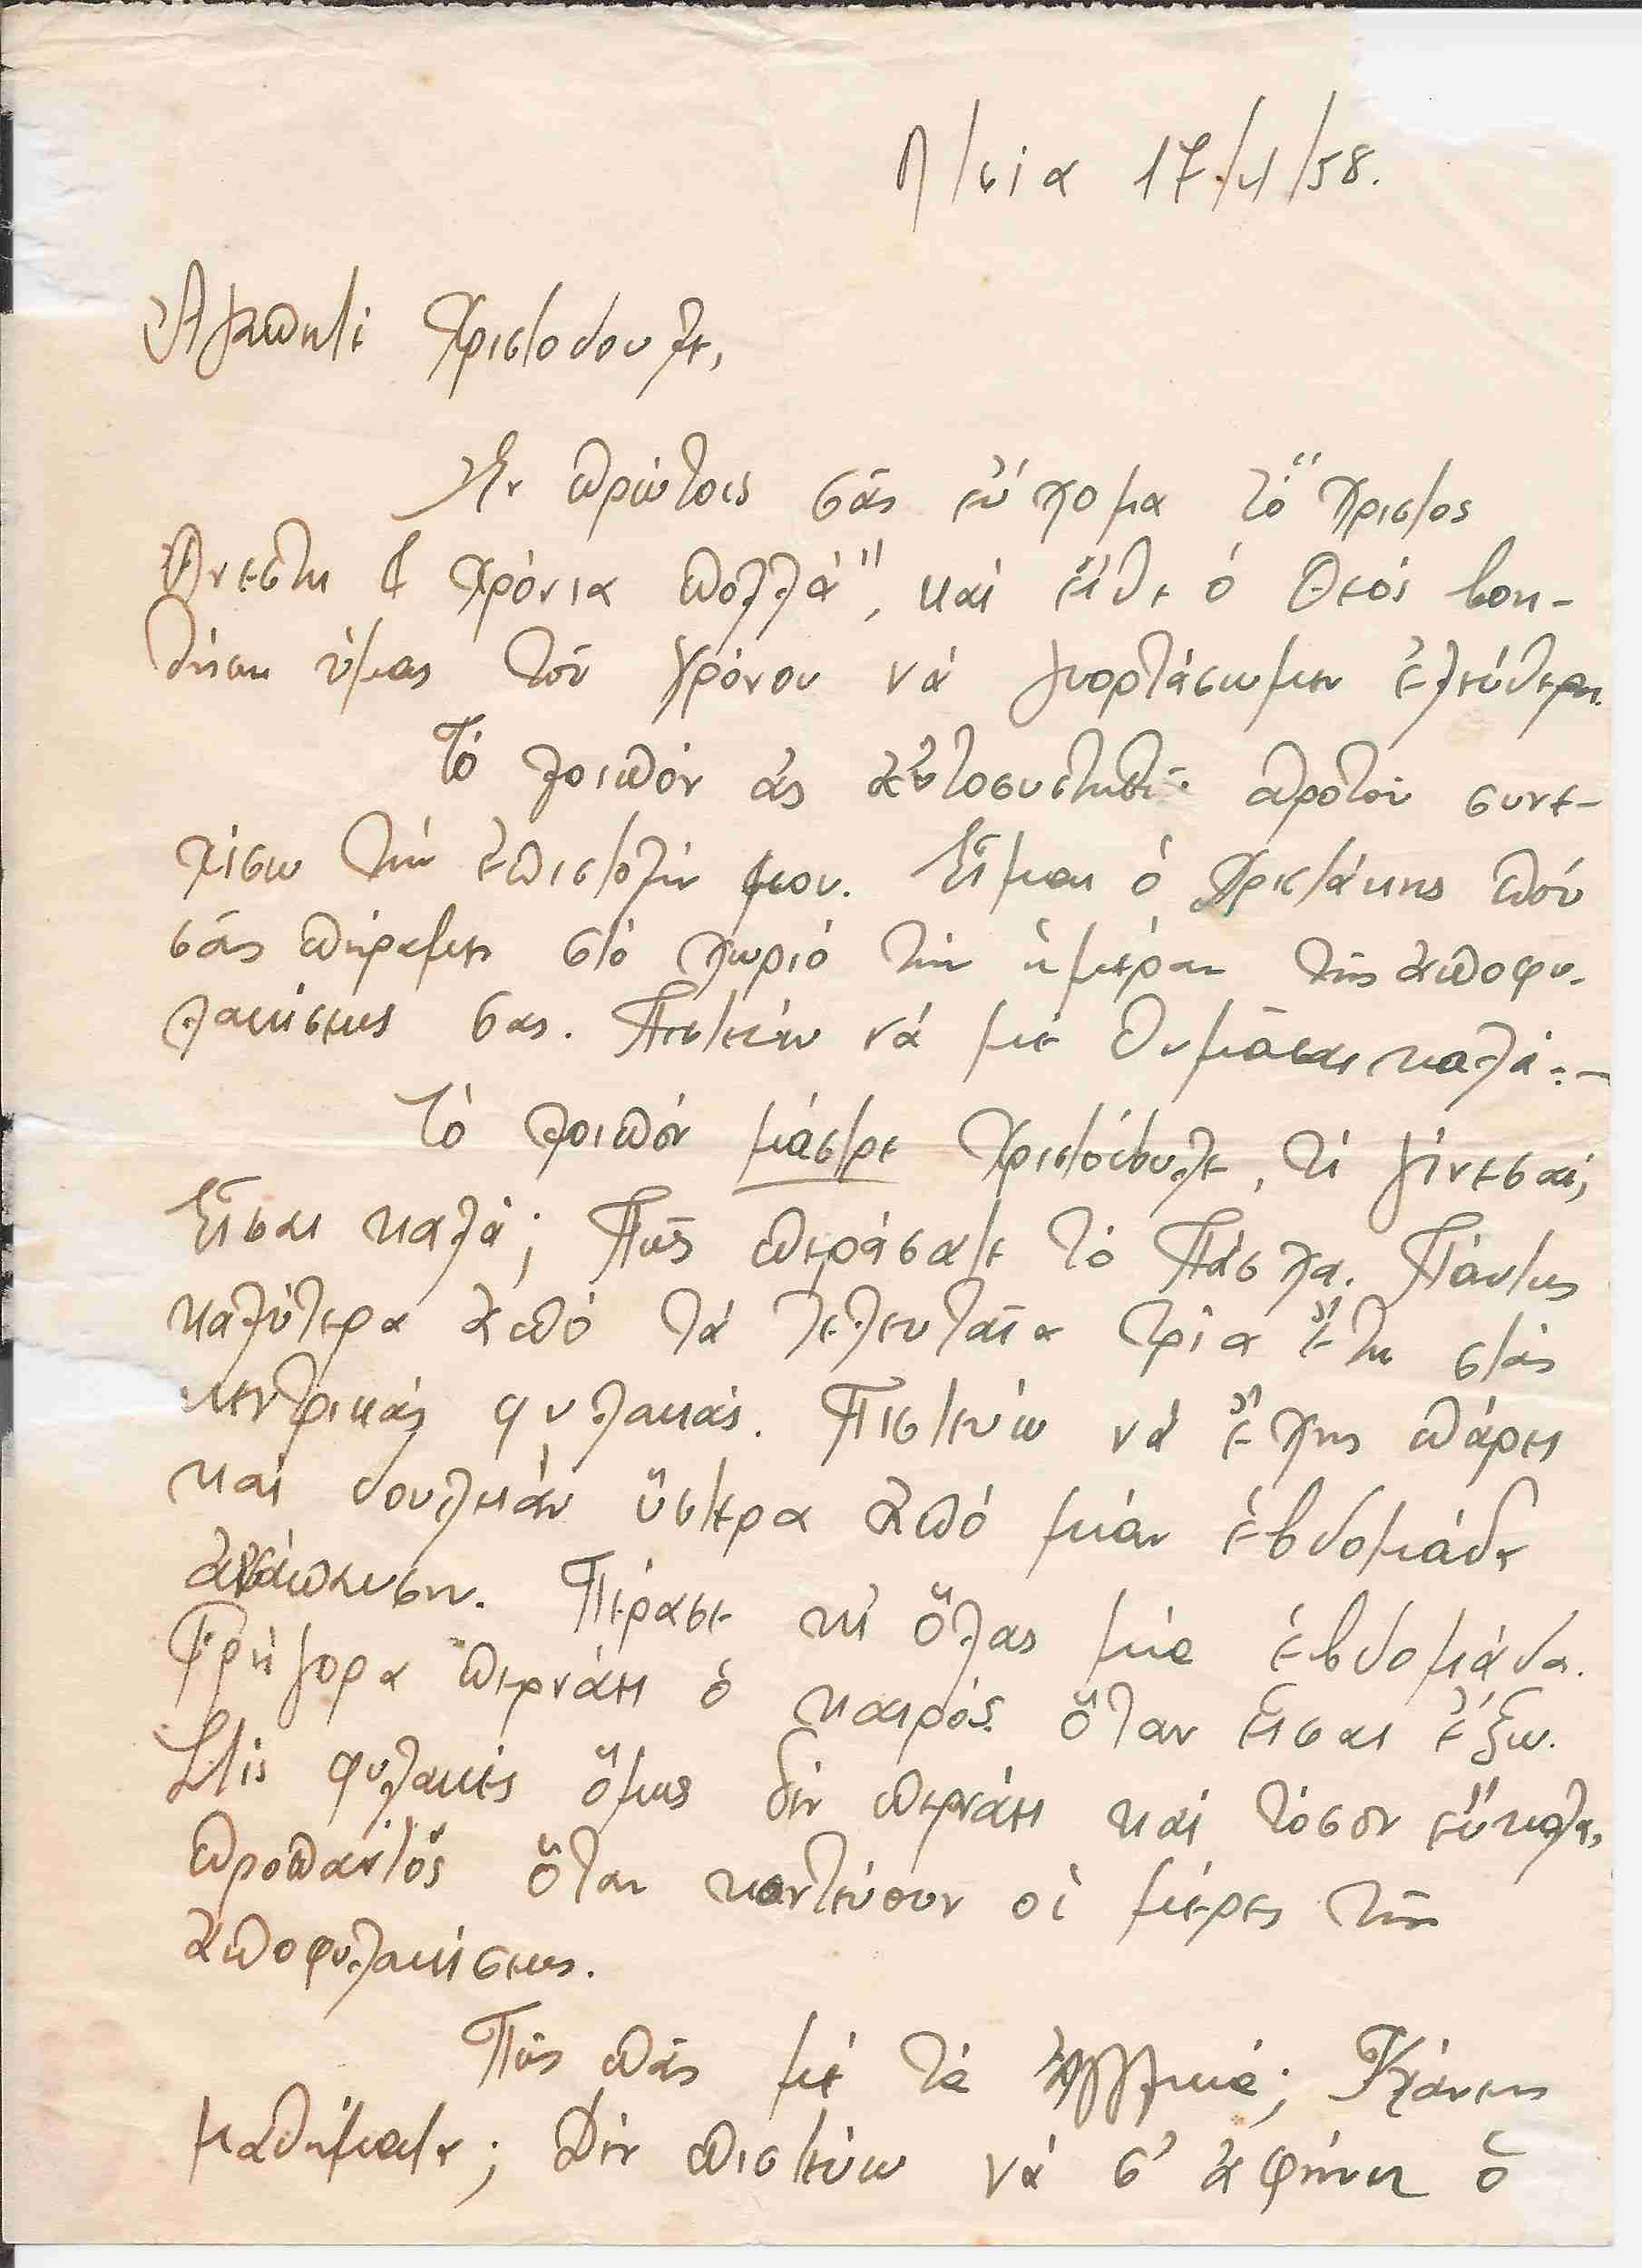 Λ/σία 17/4/58.
Ἀγαπητέ Χριστόδουλε,
Ἐν πρώτοις σᾶς εὔχομα τό "Χριστος
Ανεστη & Χρόνια πολλά", καί εἴθε ὁ Θεός βοη-
θήση ὑμας τοῦ χρόνου νά γιορτάσωμεν ἐλεύθεροι.
Τό λοιπόν ἄς αὐτοσυστηθῶ προτοῦ συνε-
χίσω τήν ἐπιστολήν μου. Εἶμαι ὁ Χριστάκης πού
σᾶς πήραμεν στό χωριό τήν ἡμέραν τῆς ἀποφυ-
λακίσεως σας. Πιστεύω νά μέ θυμᾶσαι καλά.-
Τό λοιπόν μάστρε Χριστόδουλε, τί γίνεσαι;
Εἶσαι καλά; Πῶς περάσατε τό Πάσχα. Πάντως
καλύτερα ἀπό τά τελευταῖα τρία ἔτη στάς
κεντρικάς φυλακάς. Πιστεύω νά ἔχης πάρει
καί δουλειάν ὕστερα ἀπό μιάν ἑβδομάδα
ἀνάπαυση. Πέρασε κι' ὅλας μία ἑβδομάδα.
Γρήγορα περνάει ὁ καιρός ὅταν εἶσαι ἔξω.
Στίς φυλακές ὅμως δέν περνάει καί τόσον εὔκολα,
προπαντός ὅταν κοντεύουν οἱ μέρες τῆς
ἀποφυλακίσεως.
Πῶς πᾶς μέ τά Ἀγγλικά; Κάνεις
μαθήματα; Δέν πιστεύω νά σ' ἀφήνει ὁ